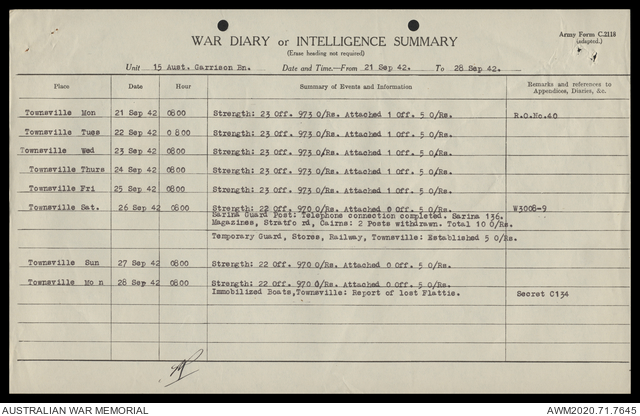 WAR DIARY or INTELLIGENCE SUMMARY
Army Form C.2118
(adapted.)
(Erase heading not required)
Unit 15 Aust. Garrison Bn. Date and Time.—From 21 Sep 42. To 28 Sep 42.
Place Date Hour Summary of Events and Information Remarks and references to Appendices, Diaries, &c.
Townsville Mon 21 Sep 42 0800 Strength: 23 Off. 973 O/Rs. Attached 1 Off. 5 O/Rs. R.O.No.40
Townsville Tues 22 Sep 42 0 800 Strength: 23 Off. 973 O/Rs. Attached 1 Off. 5 O/Rs.
Townsville Wed 23 Sep 42 0800 Strength: 23 Off. 973 O/Rs. Attached 1 Off. 5 O/Rs.
Townsville Thurs 24 Sep 42 0800 Strength: 23 Off. 973 O/Rs. Attached 1 Off. 5 O/Rs.
Townsville Fri 25 Sep 42 0800 Strength: 23 Off. 973 O/Rs. Attached 1 Off. 5 O/Rs.
Townsville Sat. 26 Sep 42 0800 Strength: 22 Off. 970 O/Rs. Attached 0 Off. 5 O/Rs. W3008-9
Sarina Guard Post: Telephone connection completed. Sarina 136.
Magazines, Stratfo rd, Cairns: 2 Posts withdrawn. Total 10 O/Rs.
Temporary Guard, Stores, Railway, Townsville: Established 5 O/Rs.
Townsville Sun 27 Sep 42 0800 Strength: 22 Off. 970 O/Rs. Attached 0 Off. 5 O/Rs.
Townsville Mo n 28 Sep 42 0800 Strength: 22 Off. 970 O/Rs. Attached 0 Off. 5 O/Rs.
Immobilized Boats,Townsville: Report of lost Flattie. Secret C134
AUSTRALIAN WAR MEMORIAL
AWM2020.71.7645